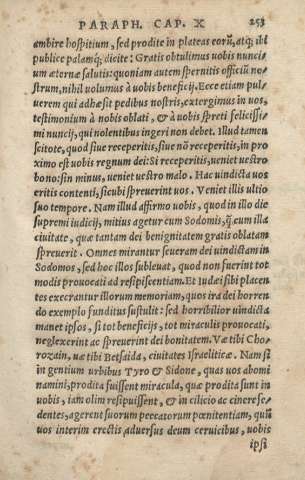 PARAPH. CAP. X 253
ambire hospitium, sed prodite in plateas eorũ, atq; ibi
publice palamq; dicite: Gratis obtulimus uobis nunci-
um æternæ salutis: quoniam autem spernitis officiũ no-
strum, nihil uolumus à uobis beneficij. Ecce etiam pul-
uerem qui adhæsit pedibus nostris, extergimus in uos,
testimonium à nobis oblati, & à uobis spreti felicissi-
mi nuncij, qui nolentibus ingeri non debet. Illud tamen
scitote, quod siue receperitis, siue nõ receperitis, in pro
ximo est uobis regnum dei: Si receperitis, ueniet uestro
bono: sin minus, ueniet uestro malo. Hac uindicta uos
eritis contenti, si cui spreuerint uos. Veniet illis ultio
suo tempore. Nam illud affirmo uobis, quod in illo die
supremi iudicij, mitius agetur cum Sodomis, q̃ cum illa
ciuitate, quæ tantam dei benignitatem gratis oblatam
spreuerit. Omnes mirantur seueram dei uindictam in
Sodomos, sed hoc illos subleuat, quod non fuerint tot
modis prouocati ad resipiscentiam. Et Iudæi sibi placen
tes execrantur illorum memoriam, quos ira dei horren
do exemplo funditus sustulit: sed horribilior uindicta
manet ipsos, si tot beneficijs, tot miraculis prouocati,
neglexerint ac spreuerint dei bonitatem. Væ tibi Cho-
rozain, uæ tibi Betsaida, ciuitates Israëliticæ. Nam si
in gentium urbibus Tyro & Sidone, quas uos abomi
namini, prodita fuissent miracula, quæ prodita sunt in
uobis, iam olim resipuissent, & in cilicio ac cinere se-
dentes, agerent suorum peccatorum pœnitentiam, quũ
uos interim erectis aduersus deum ceruicibus, uobis
ipsi